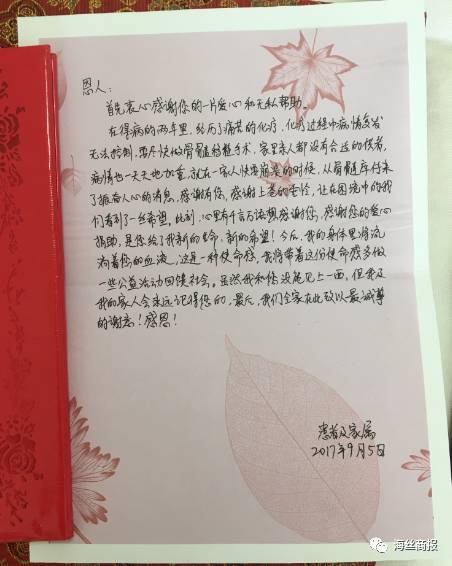 恩人：
首先衷心感谢您的一片爱心和无私帮助。
在得病的两年里，经历了痛苦的化疗，化疗过程中病情复发
无法控制，要尽快做骨髓移植手术，家里亲人都没有合适的供者，
病情也一天天地加重，就在一家人快要崩溃的时候，从骨髓库传来
了振奋人心的消息，感谢有您，感谢上苍的垂怜，让在困境中的我
们看到了一丝希望。此刻，心里有千言万语想感谢您，感谢您的爱心
捐助，是您给了我新的生命，新的希望！今后，我的身体里将流
淌着您的血液，这是一种使命感，我将带着这份使命感多做
一些公益活动回馈社会。虽然我和您没能见上一面，但我及
我的家人会永远记得您的，最后，我们全家在此致以最诚挚
的谢意！感恩！
患者及家属
2017年9月5日
海丝商报